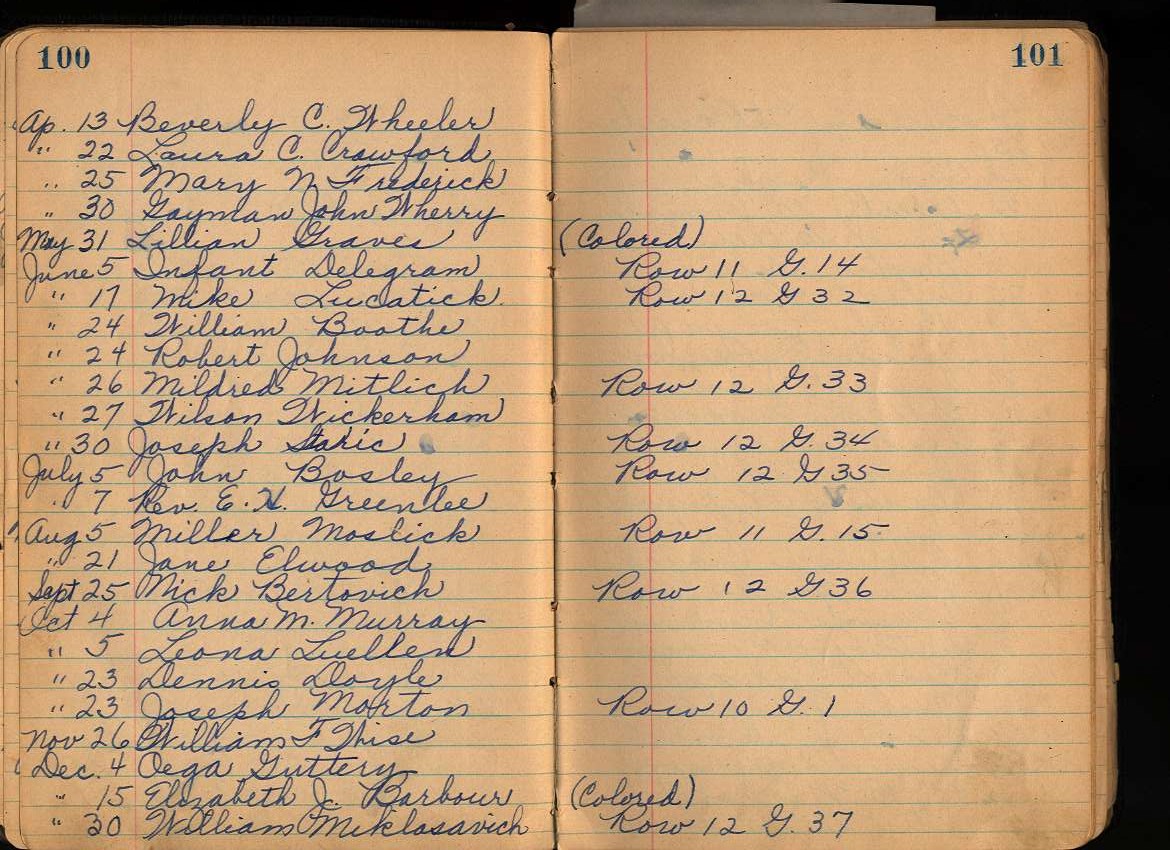 100
101
Ap. 13 Beverly C. Wheeler
" 22 Laura C. Crawford
" 25 Mary N. Frederick
" 30 Gayman John Wherry
May 31 Lillian Graves (Colored)
June 5 Infant Delegram Row 11 G. 14
" 17 Mike Lucatick Row 12 G 32
" 24 William Boothe
" 24 Robert Johnson
" 26 Mildred Mitlich Row 12 G. 33
" 27 Wilson Wickerham
" 30 Joseph Row 12 G. 34
July 5 John Bosley Row 12 G 35
" 7 Rev. E. H. Greenlee
Aug 5 Miller Moslick Row 11 G. 15
" 21 Jane Elwood
Sept 25 Nick Bertovich Row 12 G 36
Oct 4 Anna M. Murray
" 5 Leona Luellen
" 23 Dennis Doyle
" 23 Joseph Morton Row 10 G. 1
Nov 26 William F Thise
Dec. 4 Guttery
" 15 Elizabeth J. Barbour (Colored)
" 30 William Miklosavich Row 12 G. 37